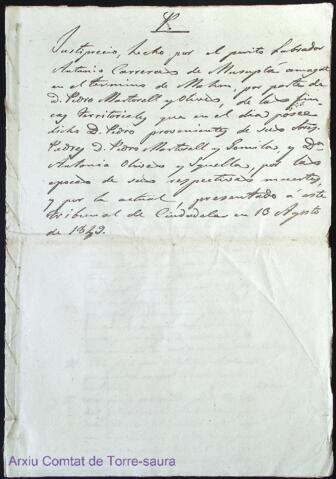 Justiprecio, hecho por el perito Labrador
Antonio Carreras de
en el termino de Mahon, por parte de
D. Pedro Martorell y Olives, de las fin
cas Territoriales que en el dia posee
dicho D. Pedro provenientes de sus Sres.
Padres D. Pedro Martorell y Gomila, y Dª
Antonia Olives y Squella, por las
epocas de sus respectivas muertes,
y por la actual, presentado a este
Tribunal de Ciudadela en 13 Agosto
de 1842.
Arxiu Comtat de Torre-saura